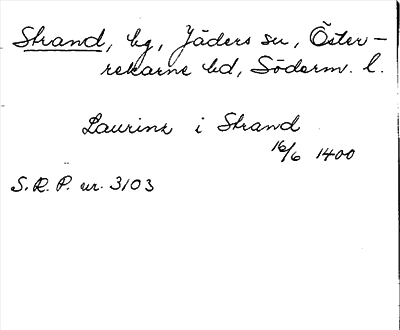 Strand, by, Jäders sn, Öster-
rekarne hd, Söderm. l.
Laurins i Strand
16/6 1400
S.R.P. nr. 3103